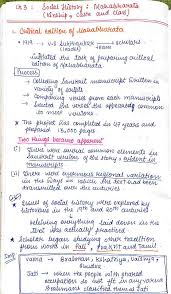 Ch 3 : Social History : Mahabharata
(Kinship, caste and class)
1. Critical edition of Mahabharata
1919 → V.S Sukthankar → scholar
initiated the task of preparing critical
edition of Mahabharata.
Process
Collecting Sanskrit manuscript written in
variety of scripts
Comparing verses from each manuscript
Selected the verses appeared common
in most versions.
The project was completed in 47 years and
13,000 pages
Two things became apparent
(1) There were several common elements in
Sanskrit version of the story, evident in
manuscripts
(2) There were enormous regional variation
in the ways in which the text had been
transmitted over the centuries
Issues of social history were explored by
historians in the 19th and 20th centuries
believing everything laid down in the
text was actually practised
Scholars began studying other tradition
from work in Pali, Prakrit and Tamil
Varna → Brahman, Kshatriya, Vaishya,
Jati → when the people with